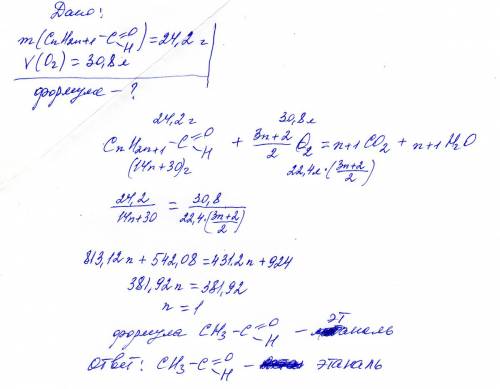 Дано:
m(CnH2n+1-C=O H) = 24,2 г
V(O2) = 30,8 л
формула - ?
24,2 г 30,8 л
CnH2n+1-C=O H + 3n+2/2 O2 = n+1 CO2 + n+1 H2O
(14n+30)г 22,4л·(3n+2/2)
24,2/14n+30 = 30,8/22,4·(3n+2/2)
813,12n + 542,08 = 431.2n + 924
381,92n = 381,92
n = 1
формула CH3-C=O H - этаналь
ответ: CH3-C=O H - этаналь